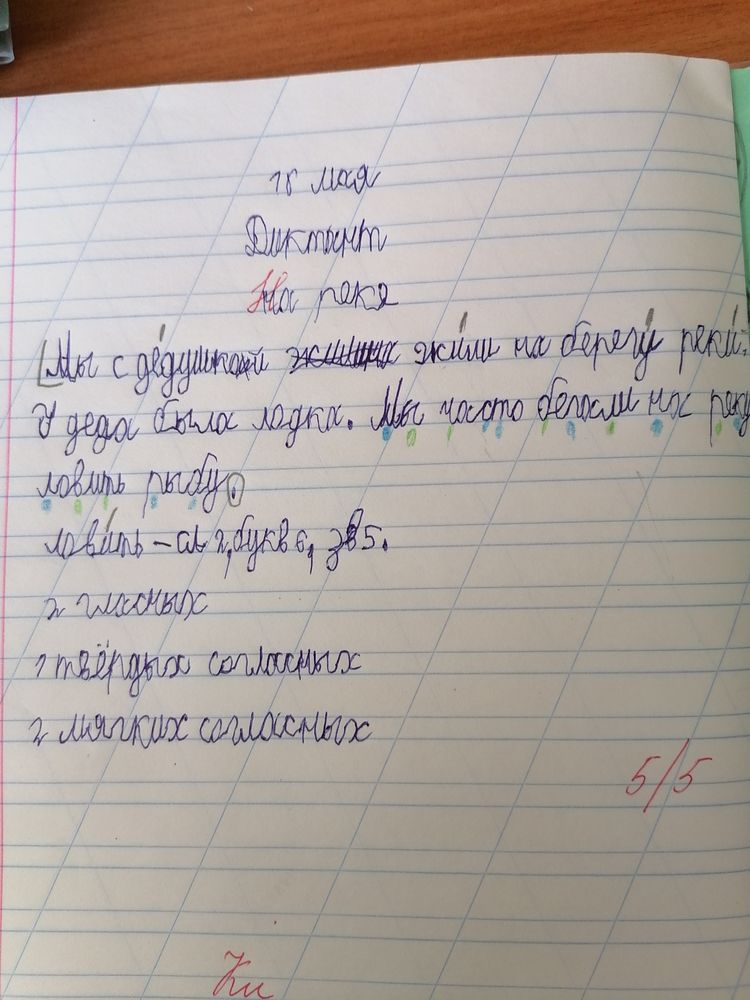 18 мая
Диктант
На реке
Мы с дедушкой жили на берегу реки.
У деда была лодка. Мы часто бегали на реку
ловить рыбу.
ловить – сл 2, букв 6, зв 5.
2 гласных
1 твёрдых согласных
2 мягких согласных
5/5